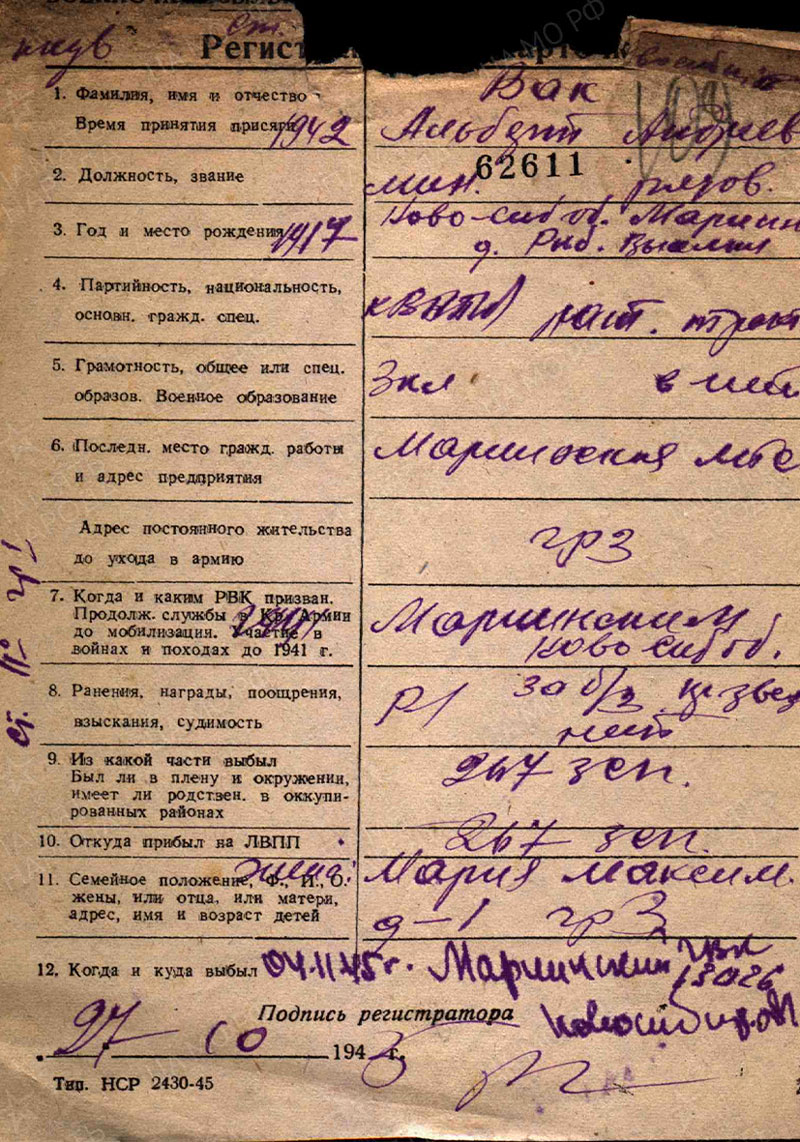 Регистр
1. Фамилия, имя и отчество
Вак
Время принятия присяги 1942
Альберт Андреев
62611
2. Должность, звание
мин. рядов.
3. Год и место рождения 1917
Ново-Сиб об. Мариин
д. Рыб.
4. Партийность, национальность,
основн. гражд. спец.
5. Грамотность, общее или спец.
образов. Военное образование
3 кл
6. Последн. место гражд. работы
и адрес предприятия
Мариинская мтс
Адрес постоянного жительства
до ухода в армию
гр 3
7. Когда и каким РВК призван.
Продолж. службы в Кр. Армии
до мобилизации. Участие в
войнах и походах до 1941 г.
Мариинским
Ново Сиб об.
8. Ранения, награды, поощрения,
взыскания, судимость
за б/з
нет
9. Из какой части выбыл
Был ли в плену и окружении,
имеет ли родствен. в оккупи-
рованных районах
267 зсп.
10. Откуда прибыл на ЛВПП
267 зсп.
11. Семейное положение, Ф., И., О.
жена:
жены, или отца, или матери,
адрес, имя и возраст детей
Мария Максим.
д-1 гр 3
12. Когда и куда выбыл 04.11.45 г. Мариинский рвк
Новосибир. обл
Подпись регистратора
27 10 1945 г.
Тип. НСР 2430-45